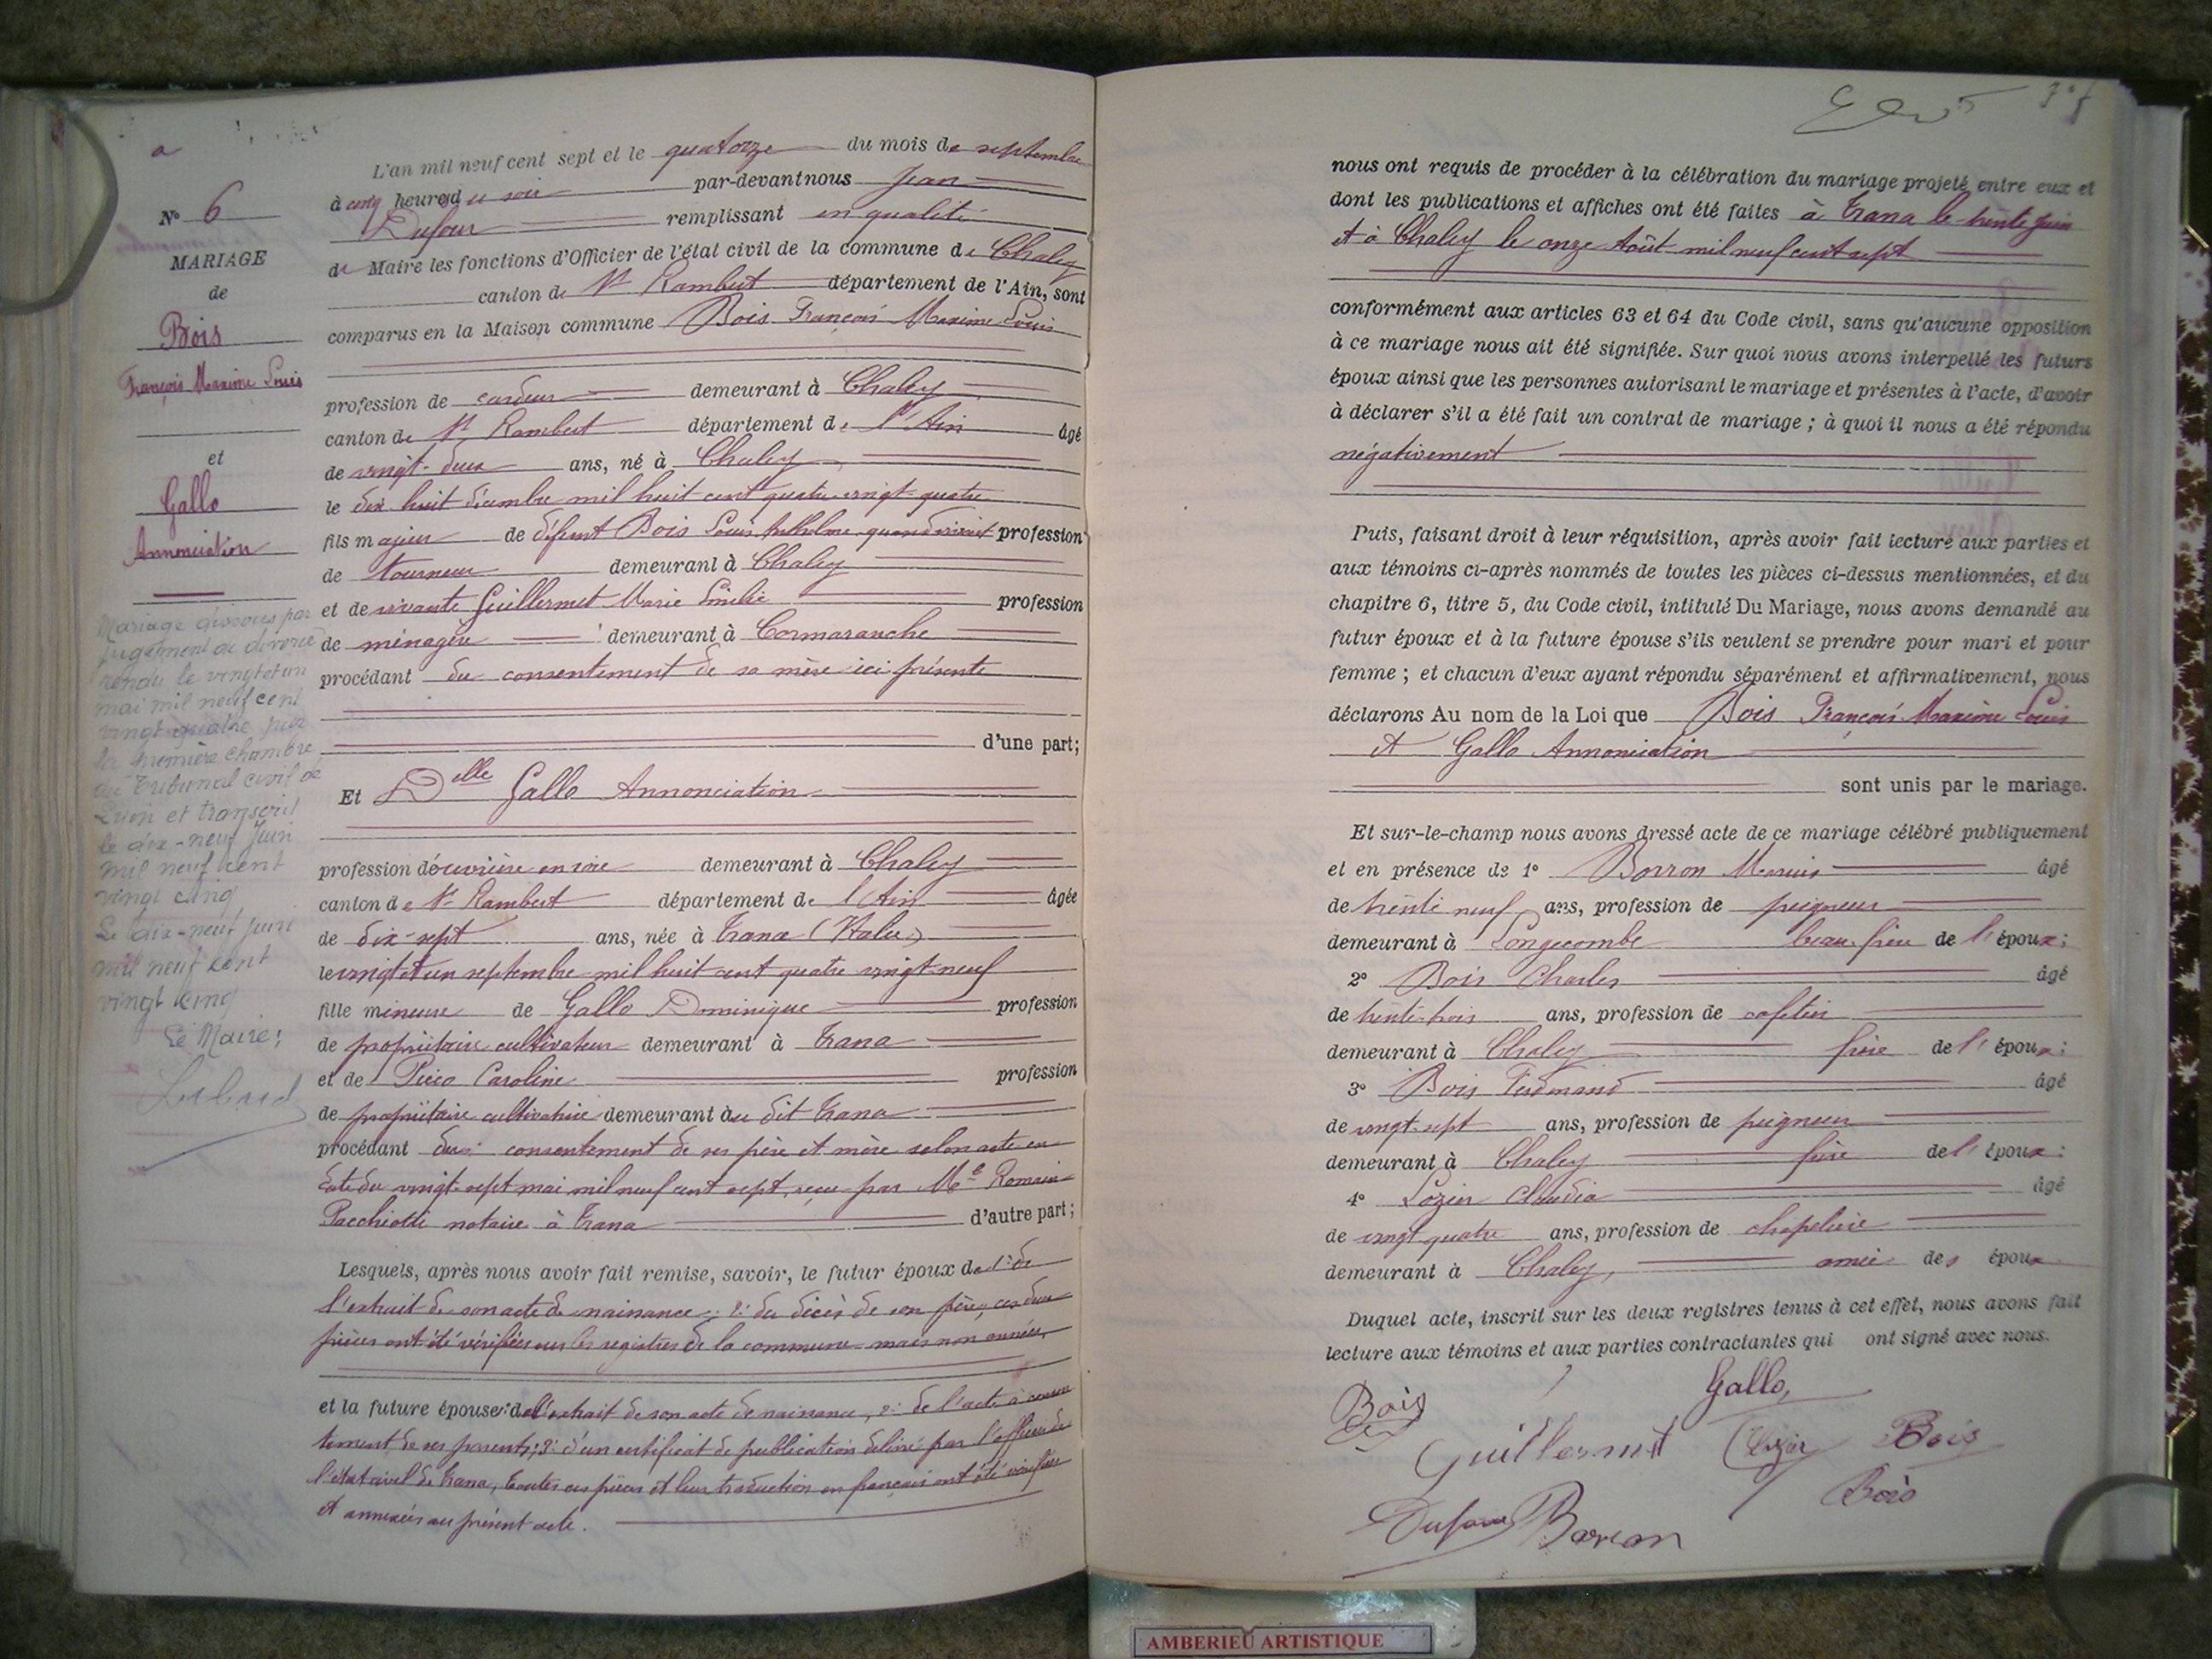 N° 6
MARIAGE
de
Bois
François Maxime Louis
et
Gallo
Annonciation
Mariage dissous par
jugement de divorce
rendu le vingt et un
mai mil neuf cent
vingt quatre par
la première chambre
du Tribunal civil de
Lyon et transcrit
le dix-neuf Juin
mil neuf cent
vingt cinq
Le dix-neuf Juin
mil neuf cent
vingt cinq
Le Maire:
L'an mil neuf cent sept et le quatorze du mois de septembre
à cinq heures du soir par-devant nous Jean
Dufour remplissant en qualité
de Maire les fonctions d'Officier de l'état civil de la commune de Chaley
canton de St Rambert département de l'Ain, sont
comparus en la Maison commune Bois François Maxime Louis
profession de cardeur demeurant à Chaley
canton de St Rambert département de l'Ain âgé
de vingt-deux ans, né à Chaley
le dix huit décembre mil huit cent quatre-vingt-quatre
fils majeur de défunt Bois Louis Anthelme quand vivait profession
de tourneur demeurant à Chaley
et de vivante Guillermet Marie Emélie profession
de ménagère demeurant à Cormaranche
procédant du consentement de sa mère ici présente
d'une part;
Et Delle Gallo Annonciation
profession d'ouvrière en soie demeurant à Chaley
canton de St Rambert département de l'Ain âgée
de dix-sept ans, née à Trana (Italie)
le vingt et un septembre mil huit cent quatre vingt-neuf
fille mineure de Gallo Dominique profession
de propriétaire cultivateur demeurant à Trana
et de Picco Caroline profession
de propriétaire cultivatrice demeurant au dit Trana
procédant du consentement de ses père et mère selon acte en
date du vingt-sept mai mil neuf cent sept, reçu par Me Romain
Pacchiotti notaire à Trana d'autre part;
Lesquels, après nous avoir fait remise, savoir, le futur époux de 1° de
l'extrait de son acte de naissance; 2° du décès de son père, ces deux
pièces ont été vérifiées sur les registres de la commune mais non annexées,
et la future épouse: de l'extrait de son acte de naissance, 2° de l'acte de consen
tement de ses parents; 3° d'un certificat de publication délivré par l'officier de
l'état civil de Trana, toutes ces pièces et leur traduction en français ont été vérifiées
et annexées au présent acte.
nous ont requis de procéder à la célébration du mariage projeté entre eux et
dont les publications et affiches ont été faites à Trana le trente juin
et à Chaley le onze Août mil neuf cent sept
conformément aux articles 63 et 64 du Code civil, sans qu'aucune opposition
à ce mariage nous ait été signifiée. Sur quoi nous avons interpellé les futurs
époux ainsi que les personnes autorisant le mariage et présentes à l'acte, d'avoir
à déclarer s'il a été fait un contrat de mariage; à quoi il nous a été répondu
négativement
Puis, faisant droit à leur réquisition, après avoir fait lecture aux parties et
aux témoins ci-après nommés de toutes les pièces ci-dessus mentionnées, et du
chapitre 6, titre 5, du Code civil, intitulé Du Mariage, nous avons demandé au
futur époux et à la future épouse s'ils veulent se prendre pour mari et pour
femme; et chacun d'eux ayant répondu séparément et affirmativement, nous
déclarons Au nom de la Loi que Bois François Maxime Louis
et Gallo Annonciation
sont unis par le mariage.
Et sur-le-champ nous avons dressé acte de ce mariage célébré publiquement
et en présence de 1° Borron Marius âgé
de trente neuf ans, profession de peigneur
demeurant à Longecombe beau-frère de l'époux;
2° Bois Charles âgé
de trente-trois ans, profession de cafetier
demeurant à Chaley frère de l'époux;
3° Bois Ferdinand âgé
de vingt-sept ans, profession de peigneur
demeurant à Chaley frère de l'époux;
4° Lozier Claudia âgé
de vingt quatre ans, profession de chapelière
demeurant à Chaley, amie des époux
Duquel acte, inscrit sur les deux registres tenus à cet effet, nous avons fait
lecture aux témoins et aux parties contractantes qui ont signé avec nous.
Bois Gallo
Guillermet Bois
Bois
Dufour Borron
AMBERIEU ARTISTIQUE